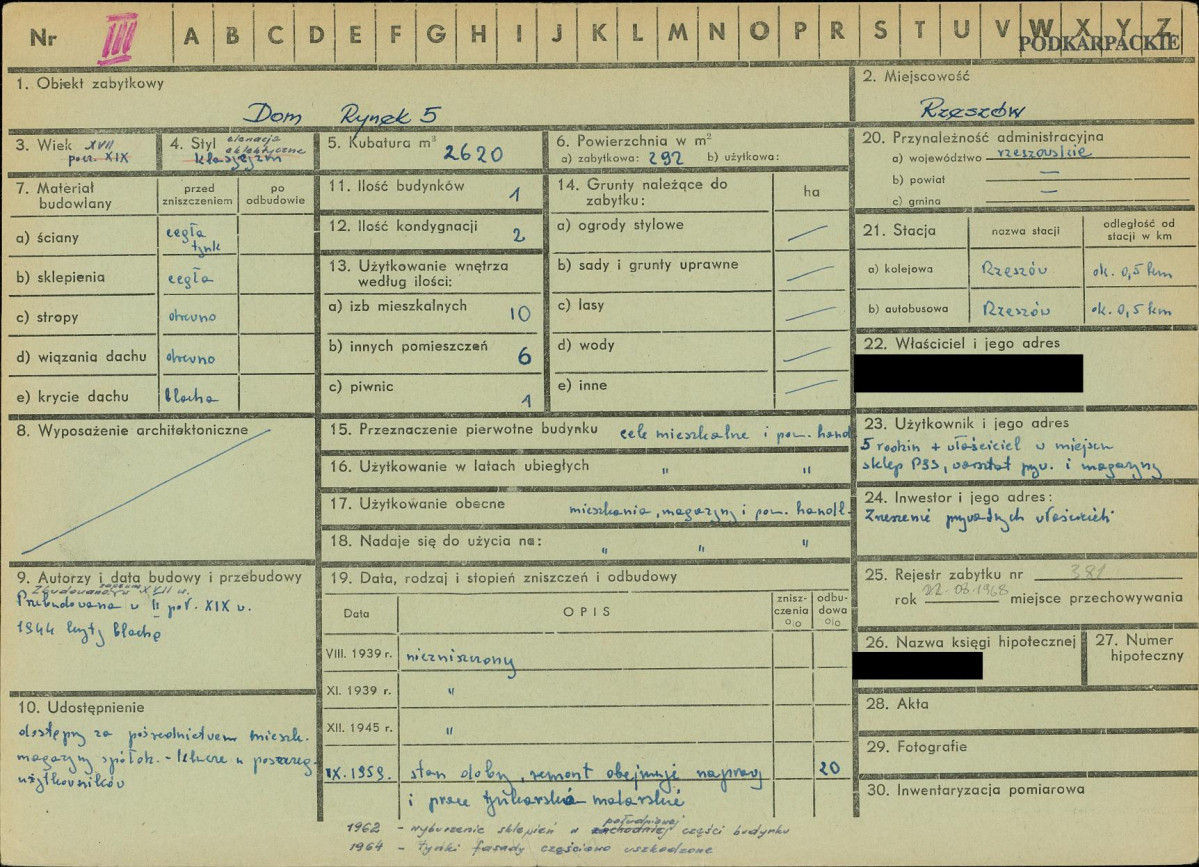 Nr III A B C D E F G H I J K L M N O P R S T U V W X Y Z
PODKARPACKIE
1. Obiekt zabytkowy
Dom Rynek 5
2. Miejscowość
Rzeszów
3. Wiek XVII
poł. XIX
4. Styl elewacja
eklektyczna
klasycyzm
5. Kubatura m³ 2620
6. Powierzchnia w m²
a) zabytkowa: 292 b) użytkowa:
20. Przynależność administracyjna
a) województwo rzeszowskie
b) powiat —
c) gmina —
7. Materiał budowlany
przed zniszczeniem
po odbudowie
a) ściany cegła tynk
b) sklepienia cegła
c) stropy drewno
d) wiązania dachu drewno
e) krycie dachu blacha
11. Ilość budynków 1
12. Ilość kondygnacji 2
13. Użytkowanie wnętrza
według ilości:
a) izb mieszkalnych 10
b) innych pomieszczeń 6
c) piwnic 1
14. Grunty należące do
zabytku:
ha
a) ogrody stylowe
b) sady i grunty uprawne
c) lasy
d) wody
e) inne
21. Stacja
nazwa stacji
odległość od
stacji w km
a) kolejowa Rzeszów ok. 0,5 km
b) autobusowa Rzeszów ok. 0,5 km
22. Właściciel i jego adres
8. Wyposażenie architektoniczne
15. Przeznaczenie pierwotne budynku cele mieszkalne i pom. hand
16. Użytkowanie w latach ubiegłych " "
17. Użytkowanie obecne mieszkania, magazyny i pom. handl.
18. Nadaje się do użycia na: " " "
23. Użytkownik i jego adres
5 rodzin + właściciel w miejscu
sklep PSS, warsztat pryw. i magazyny
24. Inwestor i jego adres:
Zrzeszenie prywatnych właścicieli
9. Autorzy i data budowy i przebudowy
Zbudowana w XVII w.
Przebudowana w II poł. XIX w.
1944 kryty blachą
19. Data, rodzaj i stopień zniszczeń i odbudowy
Data
OPIS
znisz-
czenia
%
odbu-
dowa
%
VIII. 1939 r. niezniszczony
XI. 1939 r. "
XII. 1945 r. "
IX. 1959. stan dobry, remont obejmuje naprawy 20
i prace tynkarskie malarskie
1962 - wyburzenie sklepień w zachodniej południowej części budynku
1964 - tynki fasady częściowo uszkodzone
25. Rejestr zabytku nr 381
rok 22.03.1968 miejsce przechowywania
26. Nazwa księgi hipotecznej
27. Numer
hipoteczny
10. Udostępnienie
dostępny za pośrednictwem mieszk.
magazyny spółdz. - klucze u poszczeg.
użytkowników
28. Akta
29. Fotografie
30. Inwentaryzacja pomiarowa